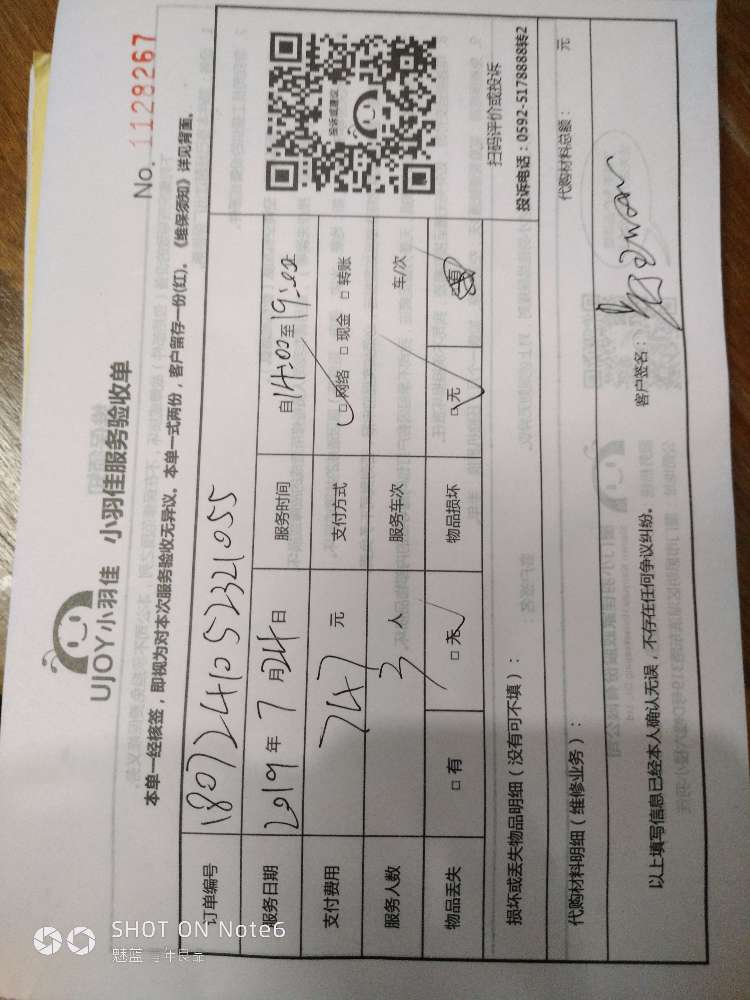 UJOY小羽佳 小羽佳服务验收单
No. 1128267
本单一经核签，即视为对本次服务验收无异议。本单一式两份，客户留存一份(红)。《维保须知》详见背面。
订单编号 1807241052321055
服务日期 2019年7月24日 服务时间 自14:00至19:00
支付费用 747元 支付方式 □网络 □现金 □转账
服务人数 3人 服务车次 车/次
物品丢失 □有 □无 物品损坏 □无
投诉或建议
扫码评价或投诉
投诉电话：0592-5178888转2
损坏或丢失物品明细（没有可不填）：
代购材料明细（维修业务）： 代购材料总额： 元
以上填写信息已经本人确认无误，不存在任何争议纠纷。 客户签名：
SHOT ON Note6
魅蓝